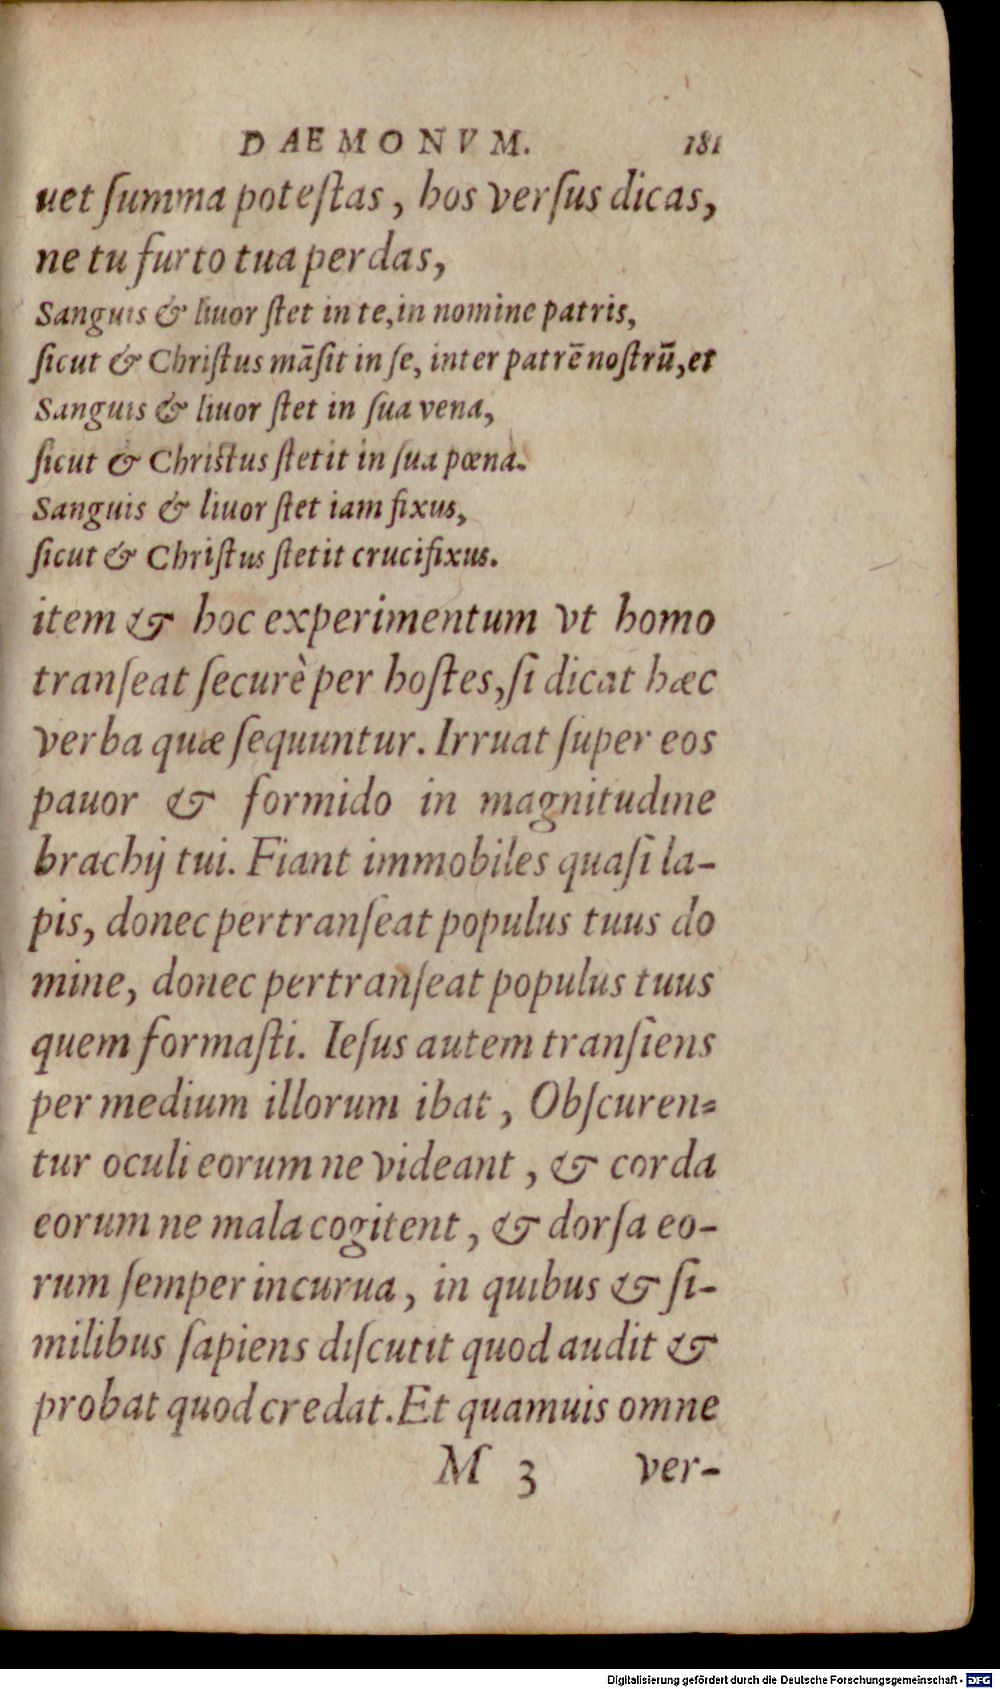 DAEMONVM. 181
uet ſumma poteſtas, hos verſus dicas,
ne tu furto tua perdas,
Sanguis & liuor ſtet in te, in nomine patris,
ſicut & Chriſtus mãſit in ſe, inter patrẽ noſtrũ, et
Sanguis & liuor ſtet in ſua vena,
ſicut & Chriſtus ſtetit in ſua pœna.
Sanguis & liuor ſtet iam fixus,
ſicut & Chriſtus ſtetit crucifixus.
item & hoc experimentum vt homo
tranſeat ſecurè per hoſtes, ſi dicat hæc
verba quæ ſequuntur. Irruat ſuper eos
pauor & formido in magnitudine
brachij tui. Fiant immobiles quaſi la-
pis, donec pertranſeat populus tuus do
mine, donec pertranſeat populus tuus
quem formaſti. Ieſus autem tranſiens
per medium illorum ibat, Obſcuren-
tur oculi eorum ne videant, & corda
eorum ne mala cogitent, & dorſa eo-
rum ſemper incurua, in quibus & ſi-
milibus ſapiens diſcutit quod audit &
probat quod credat. Et quamuis omne
M 3 ver-
Digitalisierung gefördert durch die Deutsche Forschungsgemeinschaft - DFG